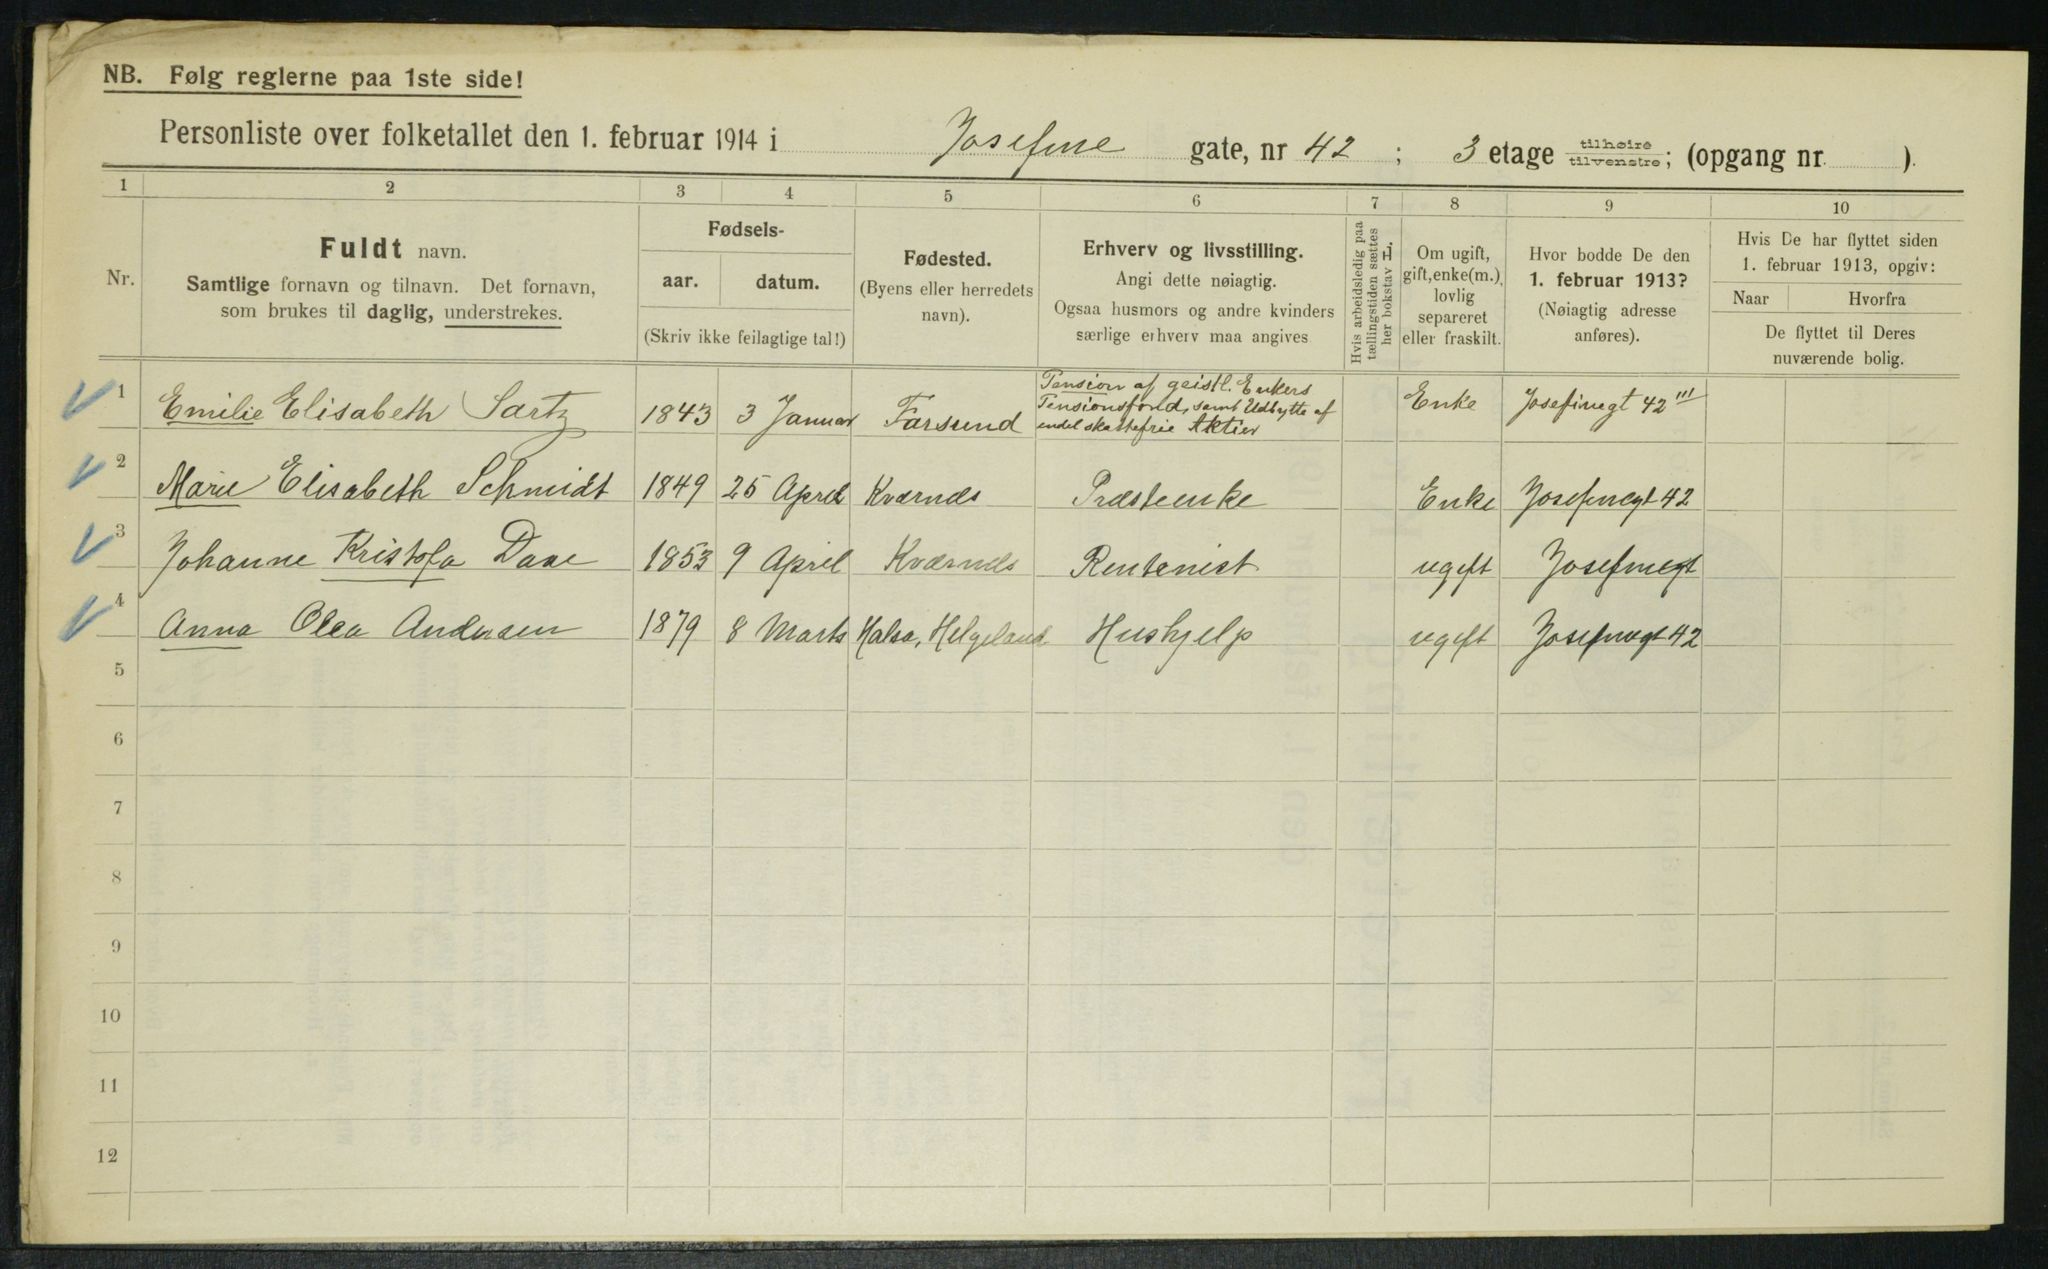 NB. Følg reglerne paa 1ste side!
Personliste over folketallet den 1. februar 1914 i Josefine gate, nr 42 ; 3 etage tilhøire tilvenstre; (opgang nr ).
1 2 3 4 5 6 7 8 9 10
Nr.
Fuldt navn.
Samtlige fornavn og tilnavn. Det fornavn,
som brukes til daglig, understrekes.
Fødsels-
aar. datum.
(Skriv ikke feilagtige tal!)
Fødested.
(Byens eller herredets
navn).
Erhverv og livsstilling.
Angi dette nøiagtig.
Ogsaa husmors og andre kvinders
særlige erhverv maa angives
Hvis arbeidsledig paa
tællingstiden sættes
her bokstav L.
Om ugift,
gift, enke(m.),
lovlig
separeret
eller fraskilt.
Hvor bodde De den
1. februar 1913?
(Nøiagtig adresse
anføres).
Hvis De har flyttet siden
1. februar 1913, opgiv:
Naar Hvorfra
De flyttet til Deres
nuværende bolig.
1 Emilie Elisabeth Sartz 1843 3 Januar Farsund Pension af geistl. Enkers
Pensionsfond, samt Udbytte af
endel skattefrie Aktier Enke Josefinegt 42 III
2 Marie Elisabeth Schmidt 1849 25 April Kværnæs Præsteenke Enke Josefinegt 42
3 Johanne Kristofa Daae 1853 9 April Kværnæs Rentenist ugift Josefinegt
4 Anna Olea Andersen 1879 8 Marts Halsa, Helgeland Hushjelp ugift Josefinegt 42
5
6
7
8
9
10
11
12